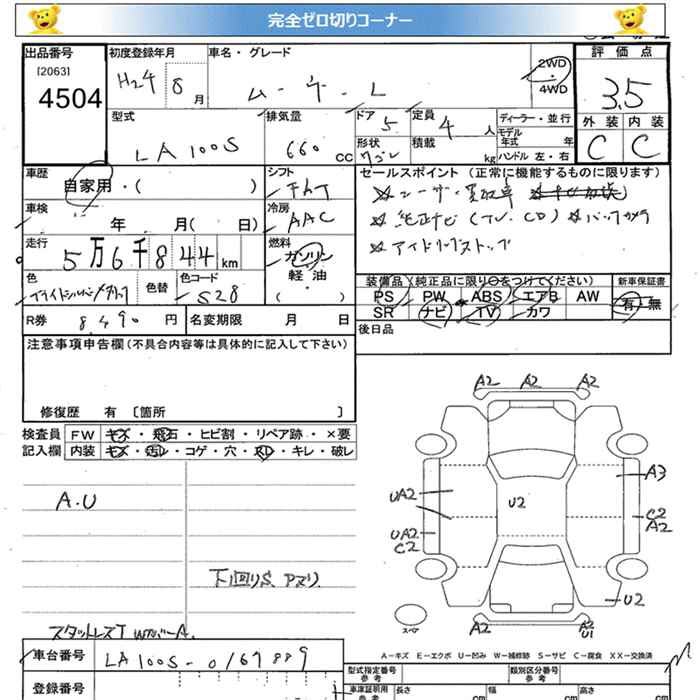 完全ゼロ切りコーナー
出品番号 初度登録年月 車名・グレード 評価点
[2063] H24 8月 ムーヴ・L 2WD・4WD 3.5
4504
型式 排気量 ドア 定員 ディーラー・並行 外装 内装
LA100S 660cc 5 4人 モデル年式 年 C C
形状 積載 kg ハンドル 左・右
ワゴン
車歴 シフト セールスポイント (正常に機能するものに限ります)
自家用・( )
車検 冷房 純正ナビ(TV.CD) バックカメラ
年 月( 日) AAC
アイドリングストップ
走行 燃料
5万6千844km ガソリン
軽油
・( )
色 色替 色コード 装備品(純正品に限り○をつけてください) 新車保証書
ブライトシルバーメタリック S28 PS PW ABS エアB AW 有・無
SR ナビ TV カワ
R券 8,490円 名変期限 月 日 後日品
注意事項申告欄 (不具合内容等は具体的に記入して下さい)
修復歴 有 [箇所 ]
検査員 FW キズ・飛石・ヒビ割・リペア跡・×要
記入欄 内装 キズ・汚レ・コゲ・穴・スレ・キレ・破レ
A2 A2 A2
A.U
UA2 U2 A3
UA2 C2
C2 A2
下回りS
U2
スペア A2 A2
U1
スタットレスT WカバーA.
A-キズ E-エクボ U-凹み W-補修跡 S-サビ C-腐食 XX-交換済
車台番号 LA100S-0167889
登録番号 型式指定番号 参考 類別区分番号 参考
車庫証明用 参考 長さ cm 幅 cm 高さ cm